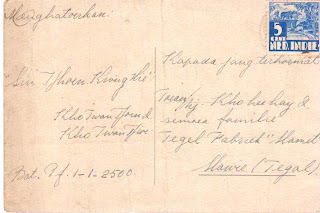 Menghatoerkan:
Sin Tjhoen Kiong Hie
Kho Twan
Kho Twan
Bat. 1-1-2500
5
CENT
NED. INDIË
Kapada jang terhoermat
Kho hee hay &
semoea familie
Tegel Fabriek "Slamet"
Slawie (Tegal).